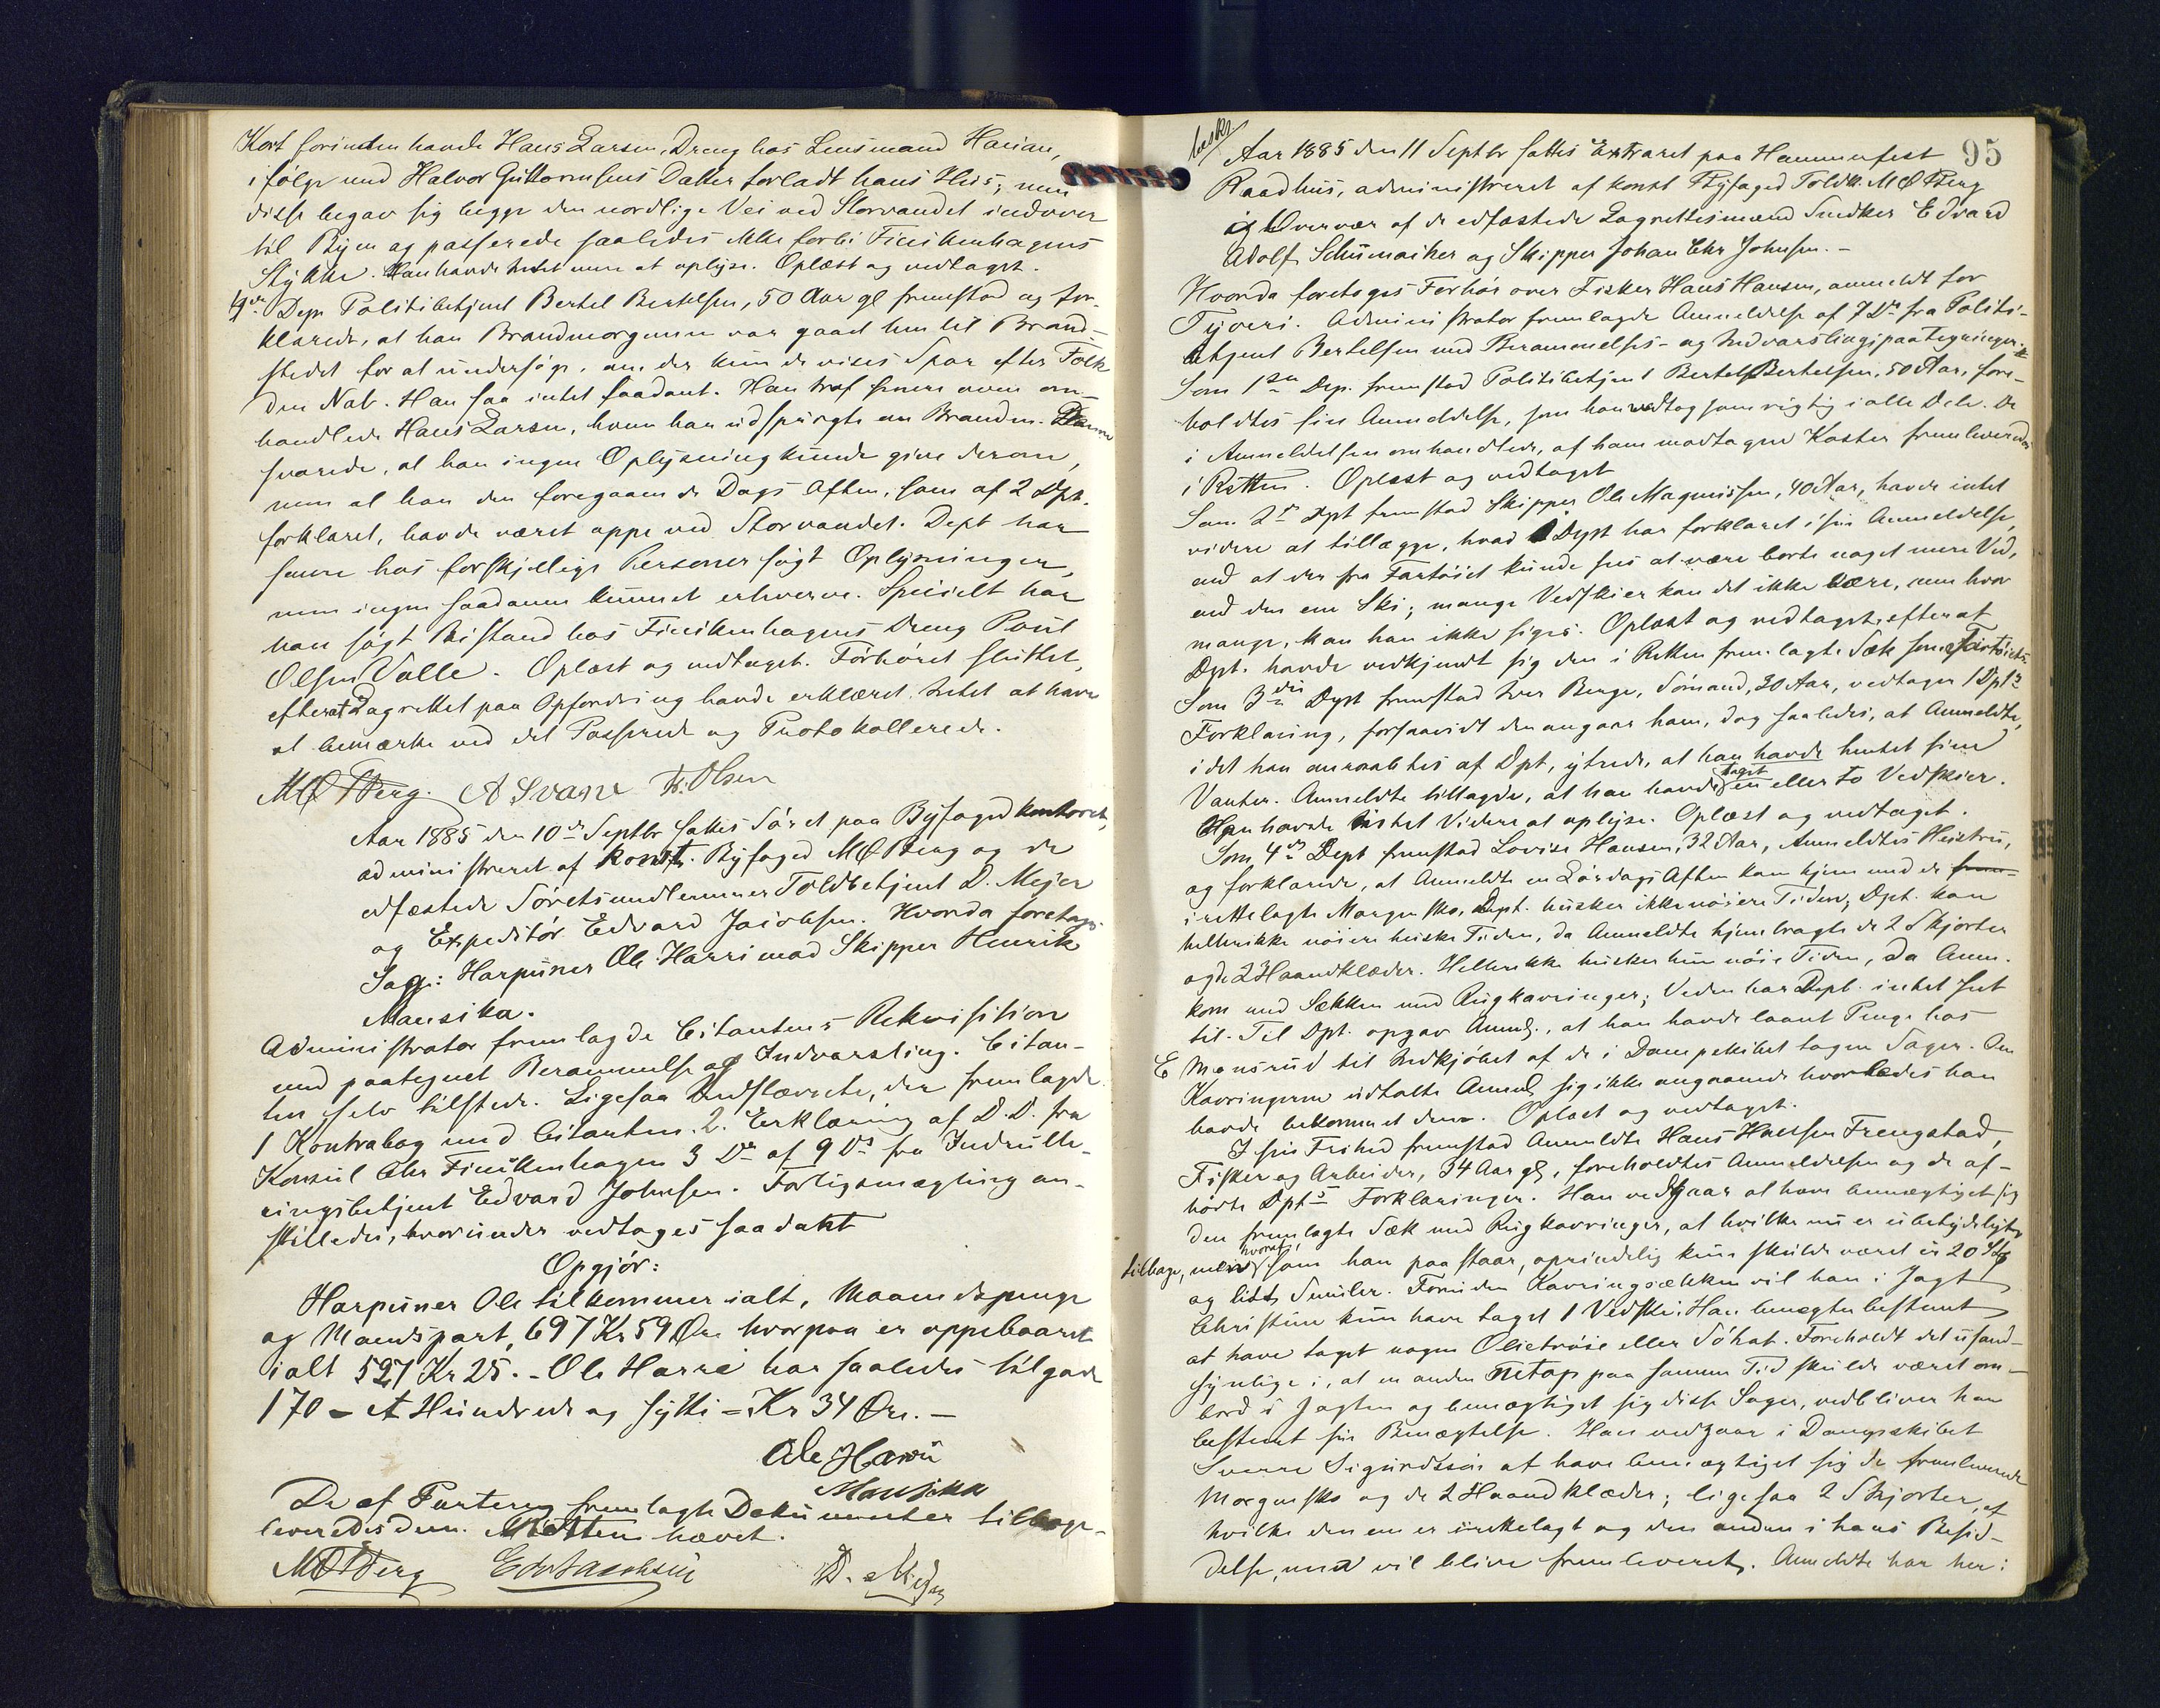 Kort forinden havde Hans Larsen, Dreng hos Lensmand Harian,
ifølge med Halvor Guttormsens Datter forladt hans Hus; men
disse begav sig begge den nordlige Vei ved Storvandet indover
til Byen og passerede saaledes ikke forbi Finckenhagens
Stykke. Han havde Intet mere at oplyse. Oplæst og vedtaget.
4de Dep Politibetjent Bertel Bertelsen, 50 Aar gl fremstod og for-
klarede, at han Brandmorgenen var gaaet hen til Brand-
stedet for at undersøge, om der kunde vises Spor efter Folk
den Nat. Han saa intet saadant. Han traf senere oven om-
handlede Hans Larsen, hvem han udspurgte om Branden. Denne
svarede, at han ingen Oplysning kunde give derom,
men at han den foregaaende Dags Aften, som af 2 Dpt.
forklaret, havde været oppe ved Storvandet. Dept har
senere hos forskjellige Personer søgt Oplysninger,
men ingen saadanne kunnet erhverve. Specielt har
han søgt Bistand hos Finckenhagens Dreng Poul
Olsen Valle. Oplæst og vedtaget. Forhøret sluttet,
efterat Lagrettet paa Opfordring havde erklæret Intet at have
at bemærke ved det Passerede og Protokollerede.
MØ Berg. A Svane H. Olsen
Aar 1885 den 10de Septbr sattes Søret paa Byfogedkontoret,
administreret af konst. Byfoged MØ Berg og de
edfæstede Søretsmedlemmer Toldbetjent D. Mejer
og Expeditør Edvard Jacobsen. Hvorda foretoges
Sag: Harpuner Ole Harri mod Skipper Henrik
Mausika.
Administrator fremlagde Citantens Rekvisition
med paategnet Berammelse og Indvarsling. Citan-
ten selv tilstede. Ligesaa Indstævnte, der fremlagde
1 Kontrabog med Citanten. 2. Erklæring af D.D. fra
Konsul Chr Finckenhagen 3 Do af 9 Ds fra Indrulle-
ringsbetjent Edvard Johnsen. Forligsmægling an-
stilledes, hvorunder vedtoges saadant
Opgjør:
Harpuner Ole tilkommer ialt, Maanedspenge
og Mandspart, 697 Kr 59 Øre hvorpaa er oppebaaret
ialt 527 Kr 25. - Ole Harri har saaledes tilgode
170 - Et Hundrede og sytti - Kr 34 Øre. -
Ole Harri
Mausika
De af Parterne fremlagte Dokumenter tilbage-
leveredes dem. Retten hævet.
MØ Berg Edv Jacobsen D. Mejer
95
Aar 1885 den 11 Septbr sattes Extraret paa Hammerfest
Raadhus, administreret af konst Byfoged Toldk. MØ Berg
i Overvær af de edfæstede Lagrettesmænd Snedker Edvard
Adolf Schumacher og Skipper Johan Chr Johnsen. -
Hvorda foretoges Forhør over Fisker Hans Hansen, anmeldt for
Tyveri. Administrator fremlagde Anmeldelse af 7 Ds fra Politi-
betjent Bertelsen med Berammelses- og Indvarslingspaategninger.
Som 1ste Dep. fremstod Politibetjent Bertel Bertelsen, 50 Aar, fore-
holdtes sin Anmeldelse, som han vedtog som rigtig i alle Dele. De
i Anmeldelsen omhandlede, af ham modtagne Koster fremleveredes
i Retten. Oplæst og vedtaget
Som 2de Dpt fremstod Skipper Ole Magnussen, 40 Aar, havde intet
videre at tillægge, hvad Dept har forklaret i sin Anmeldelse,
end at der fra Fartøiet kunde sees at være borte noget mere Ved,
end den ene Ski; mange Vedskier kan det ikke være, men hvor
mange, kan han ikke sige. Oplæst og vedtaget, efterat
Dpt. havde vedkjendt sig den i Retten fremlagte Sæk som Fartøiets
Som 3die Dpt fremstod Iver Berge, Sømand, 30 Aar, vedtager 1 Dpts
Forklaring, forsaavidt den angaar ham, dog saaledes, at Anmeldte,
idet han anraabtes af Dpt, ytrede, at han havde hentet sine
Vanter. Anmeldte tillagde, at han havde taget en eller to Vedskier.
Han havde Intet Videre at oplyse. Oplæst og vedtaget.
Som 4de Dept fremstod Lovise Hansen, 32 Aar, Anmeldtes Hustru,
og forklarede, at Anmeldte en Lørdags Aften kom hjem med de frem-
irettelagte Morgensko, Dept. husker ikke nøiere Tiden; Dpt. kan
hellerikke nøiere huske Tiden, da Anmeldte hjembragte de 2 Skjorter
og de 2 Haandklæder. Hellerikke husker hun nøie Tiden, da Anm.
kom med Sækken med Rugkavringer; Veden har Dept. intet seet
til. Til Dpt. opgav Anm., at han havde laant Penge hos
E Monsrud til Indkjøbet af de i Dampskibet tagne Sager. Om
Kavringerne udtalte Anm. sig ikke angaaende hvorledes han
havde bekommet dem. Oplæst og vedtaget.
I sin Frihed fremstod Anmeldte Hans Hansen Trengstad,
Fisker og Arbeider, 34 Aar gl, foreholdtes Anmeldelsen og de af-
hørte Dpts Forklaringer. Han vedgaar at have bemægtiget sig
den fremlagte Sæk med Rugkavringer, af hvilke nu er ubetydeligt
tilbage, men hvoraf, som han paastaar, oprindelig kun skulde været ca 20 Stk
og lidt Smuler. Foruden Kavringsækken vil han i Jagt
Christine kun have taget 1 Vedski. Han benægter bestemt
at have taget nogen Olietrøie eller Søhat. Foreholdt det usand-
synlige i, at en anden netop paa samme Tid skulde været om-
bord i Jagten og bemægtiget sig disse Sager, vedbliver han
bestemt sin Benægtelse. Han vedgaar i Dampskibet
Sverre Sigurdssøn at have bemægtiget sig de fremleverede
Morgensko og de 2 Haandklæder; ligesaa 2 Skjorter, af
hvilke den ene er irettelagt og den anden i hans Besid-
delse, men vil blive fremleveret. Anmeldte har her i